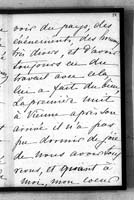 voir du pays, des
événements, des hom
toujours eu du
travail avec cela
lui a fait du bien
la première nuit
à Vienne après son
arrivé il n'a pas
pu dormir de joie
de nous avoir tous
revus, et quant à
moi, mon cœur